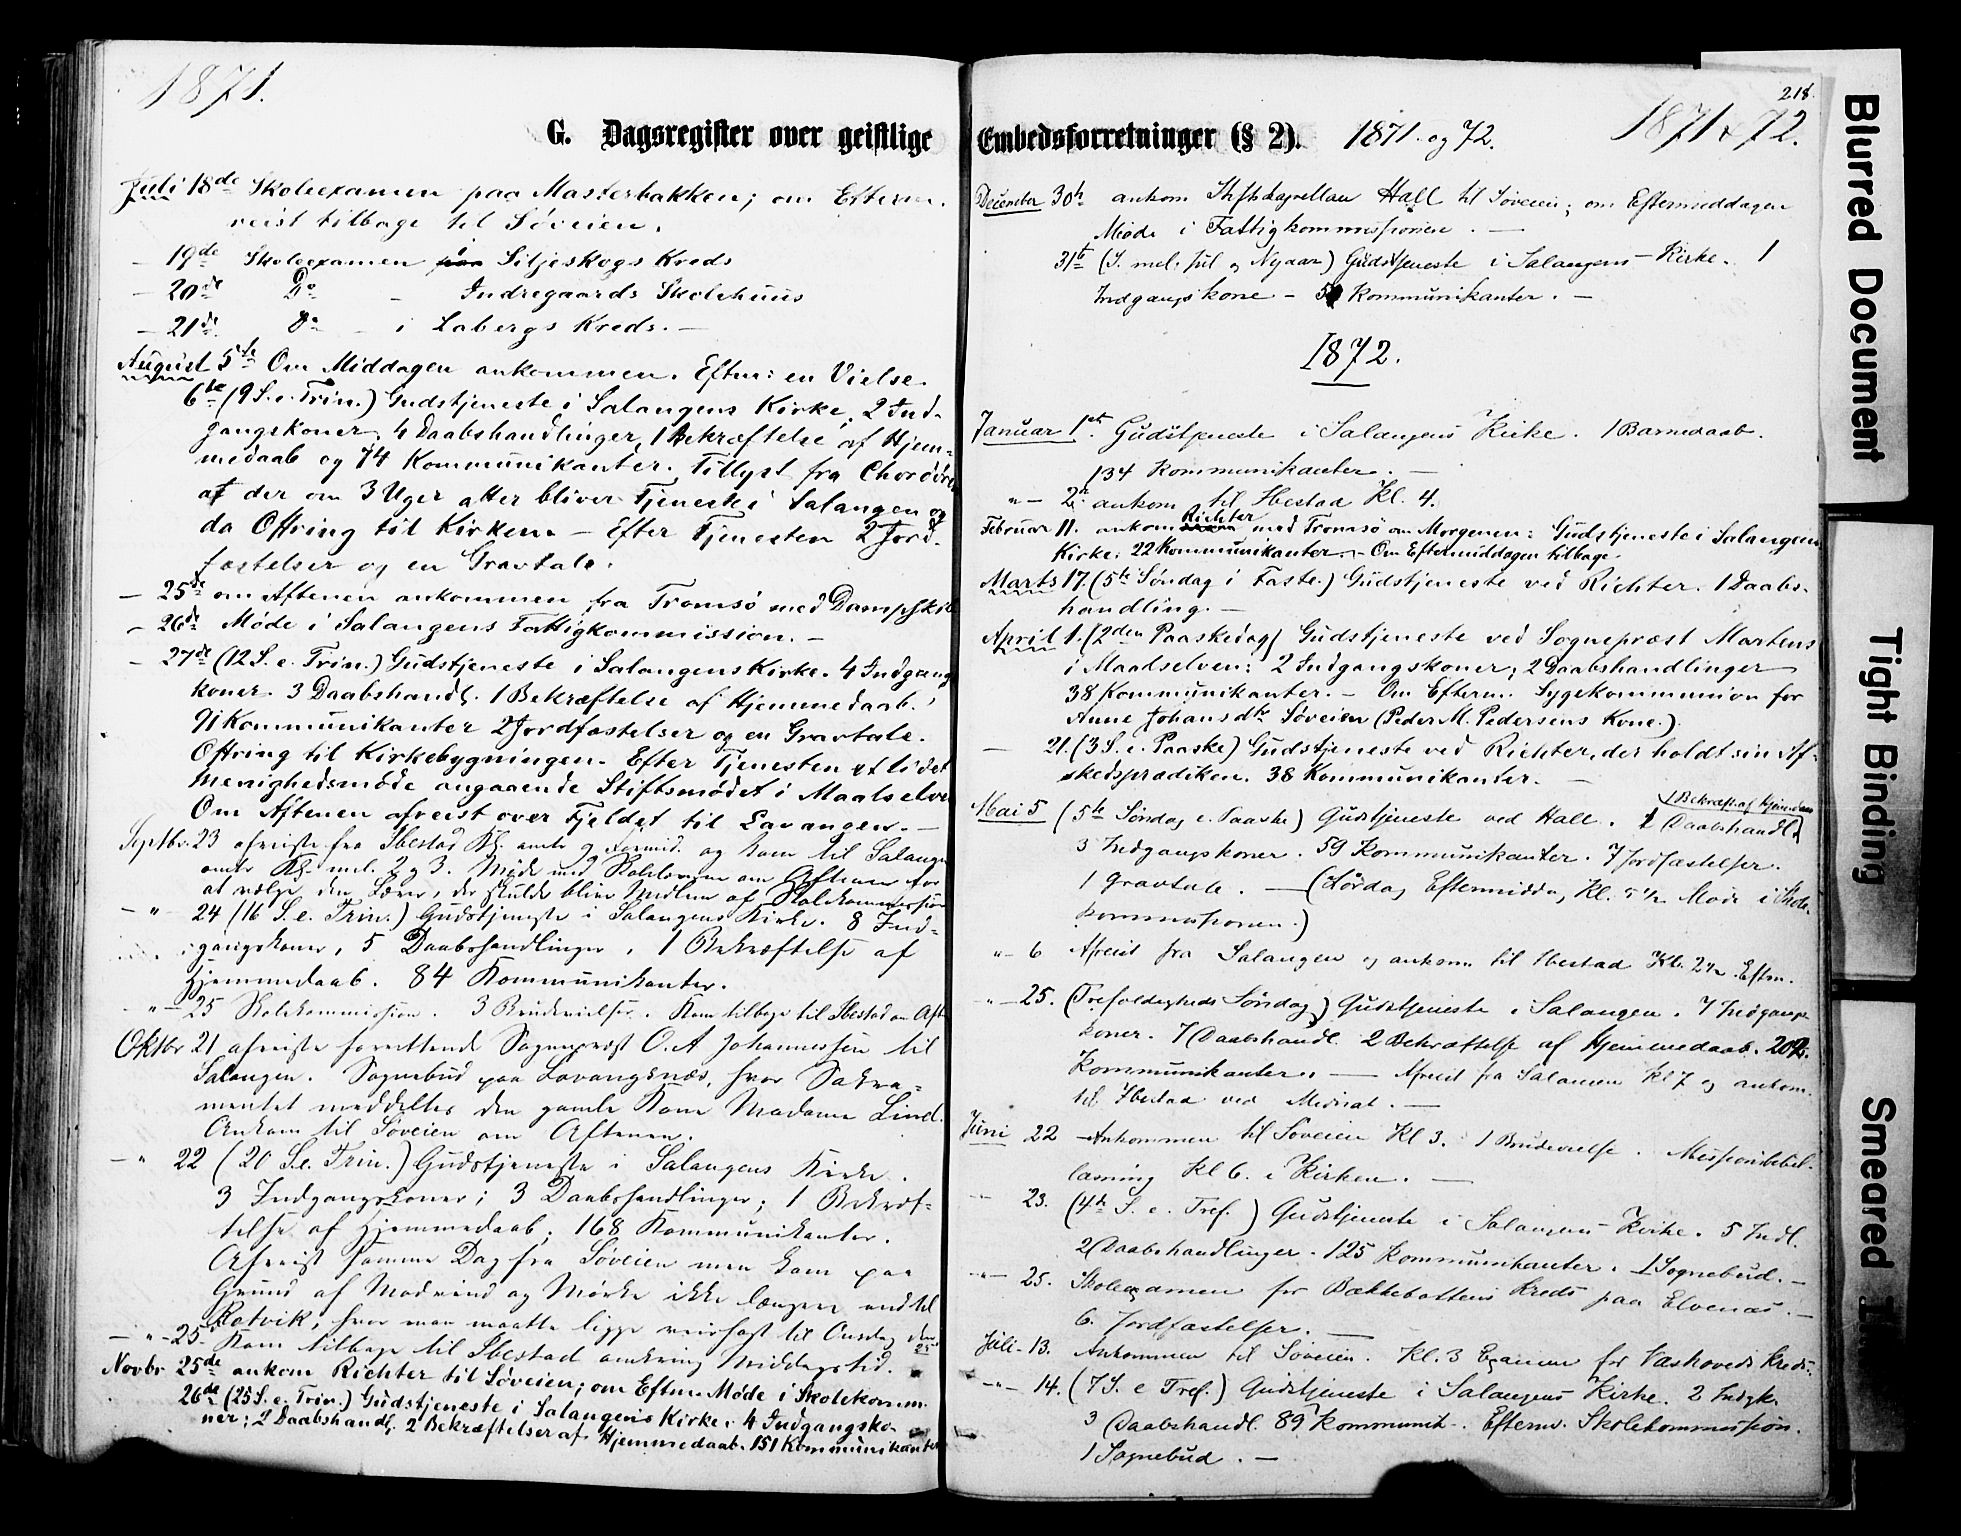 1871.
G. Dagsregister over geistlige
Juli 18de Skoleexamen paa Masterbakken; om Efterm.
reist tilbage til Søveien.
— 19de Skoleexamen i Siljeskogs Kreds
— 20de Do - Indregaards Skolehuus
— 21de Do - i Labergs Kreds. —
August 5te Om Middagen ankommen. Efterm: en Vielse.
6te (9 S. e. Trin.) Gudstjeneste i Salangens Kirke, 2 Ind-
gangskoner, 4 Daabshandlinger, 1 Bekræftelse af Hjem-
medaab og 74 Kommunikanter. Tillyst fra Chordøren
at der om 3 Uger atter bliver Tjeneste i Salangen og
da Offring til Kirken. — Efter Tjenesten 2 Jord-
fæstelser og en Gravtale.
— 25de om Aftenen ankommen fra Tromsö med Dampskib
— 26de Møde i Salangens Fattigkommission. —
— 27de (12 S. e. Trin.) Gudstjeneste i Salangens Kirke. 4 Indgangs
koner. 3 Daabshandl. 1 Bekræftelse af Hjemmedaab.
91 Kommunikanter 2 Jordfæstelser og en Gravtale.
Offring til Kirkebygningen. Efter Tjenesten et lidet
Menighedsmøde angaaende Stiftsmødet i Maalselven
Om Aftenen afreist over Fjeldet til Lavangen. —
Septbr. 23 afreiste fra Ibestad Kl. 9 Formid. og kom til Salangen
Kl. mel. 2 g 3. Møde med Skolelærerne om Aftenen for
at vælge den Lærer, der skulde blive Medlem af Skolekommission
— " — 24 (16 S. e. Trin.) Gudstjeneste i Salangens Kirke. 8 Ind-
gangskoner, 5 Daabshandlinger, 1 Bekræftelse af
Hjemmedaab. 84 Kommunikanter.
" — 25 Skolekommission. 3 Brudevielser. Kom tilbage til Ibestad om Aft
Oktbr 21 afreiste forrettende Sogneprest O. A Johannessen til
Salangen. Sognebud paa Lavangsnæs, hvor Sakra-
mentet meddeltes den gamle Kone Madame Lind.
Ankom til Søveien om Aftenen.
— " 22 (20 S. e. Trin.) Gudstjeneste i Salangens Kirke.
3 Indgangskoner; 3 Daabshandlinger; 1 Bekræf-
telse af Hjemmedaab; 168 Kommunikanter.
Afreist samme Dag fra Søveien men kom paa
Grund af Modvind og Mørke ikke længere end til
Rotvik, hvor man maatte ligge veirfast til Onsdag den 25
— " — 25 Kom tilbage til Ibestad omkring Middagstid.
Novbr 25de ankom Richter til Søveien; om Efterm Møde i Skolekomm.
26de (25 S. e. Trin.) Gudstjeneste i Salangens Kirke. 4 Indgangsko-
ner; 2 Daabshandl, 2 Bekræftelser af Hjemmedaab. 151 Kommunikanter
218.
1871 & 72.
Embedsforretninger (§ 2). 1871 og 72.
December 30te ankom Stiftskapellan Hall til Søveien; om Eftermiddagen
Møde i Fattigkommissionen. —
31te (S. mel. Jul og Nyaar) Gudstjeneste i Salangens Kirke. 1
Indgangskone — Kommunikanter. —
1872.
Januar 1ste Gudstjeneste i Salangens Kirke. 1 Barnedaab.
134 Kommunikanter. —
" — 2. ankom til Ibestad Kl. 4.
Februar 11. ankom Richter med Tromsö om Morgenen: Gudstjeneste i Salangens
Kirke: 22 Kommunikanter. — Om Eftermiddagen tilbage.
Marts 17. (5te Søndag i Faste.) Gudstjeneste ved Richter. 1 Daabs-
handling. —
April 1. (2den Paaskedag) Gudstjeneste ved Sogneprest Martens
i Maalselven: 2 Indgangskoner; 2 Daabshandlinger
38 Kommunikanter. — Om Efterm. Sygekommunion for
Anne Johansdtr Søveien (Peder M. Pedersens Kone.)
— 21. (3 S. e. Paaske) Gudstjeneste ved Richter, der holdt sin Af-
skedsprædiken. 38 Kommunikanter. —
1 Bekræft. af Hjemmedaab
Mai 5 (5te Søndag e. Paaske) Gudstjeneste ved Hall. Daabshandl.
3 Indgangskoner. 59 Kommunikanter. 7 Jordfæstelser.
1 Gravtale. — (Lördag Eftermiddag Kl. 5 1/2 Møde i Skole-
kommissionen.)
" — 6 Afreist fra Salangen og ankom til Ibestad Kl. 2 1/2 Eftm.
— " — 25. (Trefoldigheds Søndag) Gudstjeneste i Salangen. 7 Indgangs
koner. 7 Daabshandl. 2 Bekræftelse af Hjemmedaab. 202.
Kommunikanter. — Afreist fra Salangen Kl 7 og ankom
til Ibestad ved Midnat. —
Juni 22 Ankommen til Søveien Kl 3. 1 Brudevielse. Missionsbibel-
læsning Kl 6. i Kirken. —
— " 23. (4de S. e. Tref.) Gudstjeneste i Salangens Kirke. 5 Indl.
2 Daabshandlinger. 125 Kommunikanter. 1 Sognebud. —
— " — 25. Skoleexamen for Bækkebottens Kreds paa Elvenæs. —
6. Jordfæstelser. —
Juli — 13. Ankommen til Søveien. Kl. 3 Examen for Vashoveds Kreds
— " — 14. (7 S. e Tref.) Gudstjeneste i Salangens Kirke. 2 Indgk.
3 Daabshandl. 89 Kommunik. Efterm. Skolekommission.
1 Sognebud. —
Blurred Document
Tight Binding
Smeared